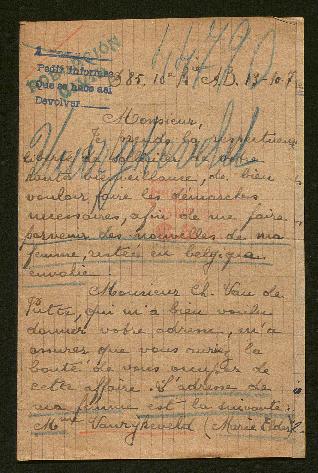 44790
POBLACIÓN CIVIL
Pedir informes
que se haas así
Devolver
D 85. 10e Cie A.B. 13-10-7
Vanryckeveld
Monsieur,
Je prends la respectueuse
de solliciter de votre
haute bienveillance, de bien
vouloir faire les démarches
nécessaires, afin de me faire
parvenir des nouvelles de ma
femme, restée en belgique
envahie.
Monsieur Ch. Van de
Putte, qui m'a bien voulu
donner votre adresse, m'a
assuré que vous auriez la
bonté de vous occuper de
cette affaire. L'adresse de
ma femme est la suivante:
Mme Vanryckeveld (Marie